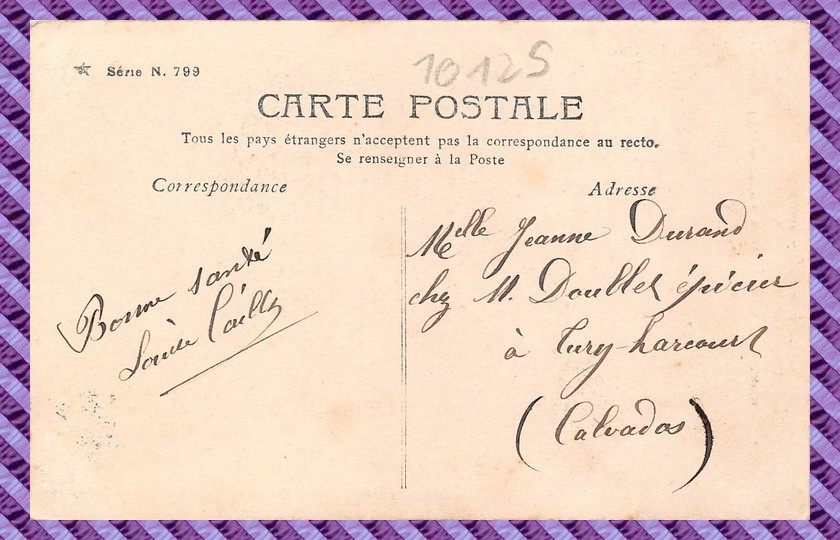 Série N. 799
10125
CARTE POSTALE
Tous les pays étrangers n'acceptent pas la correspondance au recto.
Se renseigner à la Poste
Correspondance
Bonne santé
Louise Cailly
Adresse
Melle Jeanne Durand
chez M. Doullet épicier
à Tury-harcourt
(Calvados)